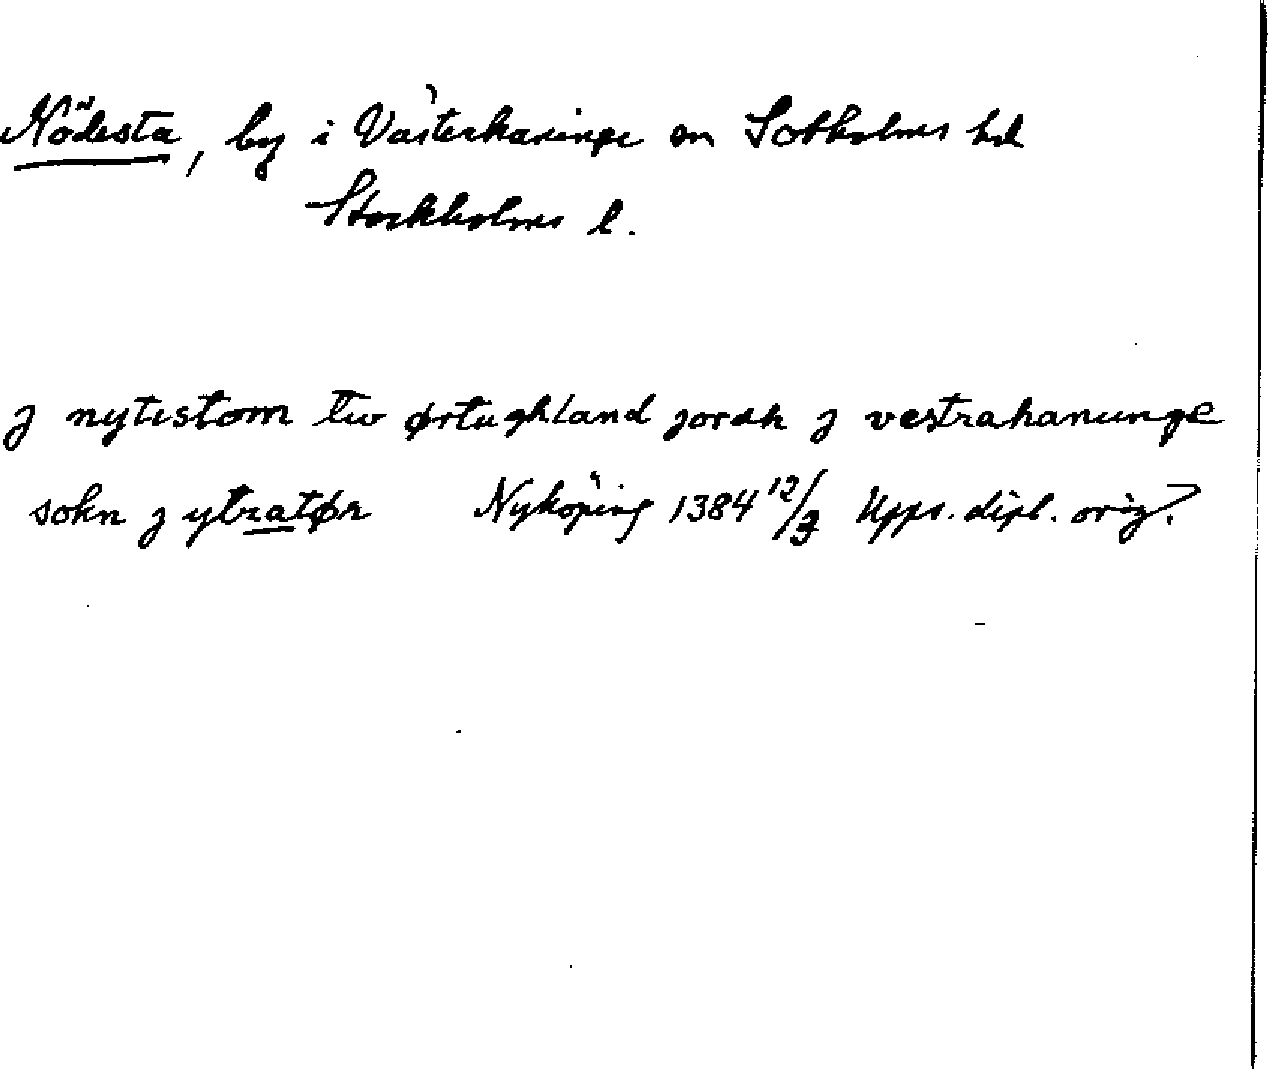 Nödesta, by i Västerhaninge sn Sotholms hd
Stockholms l.
j nytistom tw ørtughland jordh j vestrahanunge
sokn j ytratør Nyköping 1384 12/3 Upps. dipl. orig.